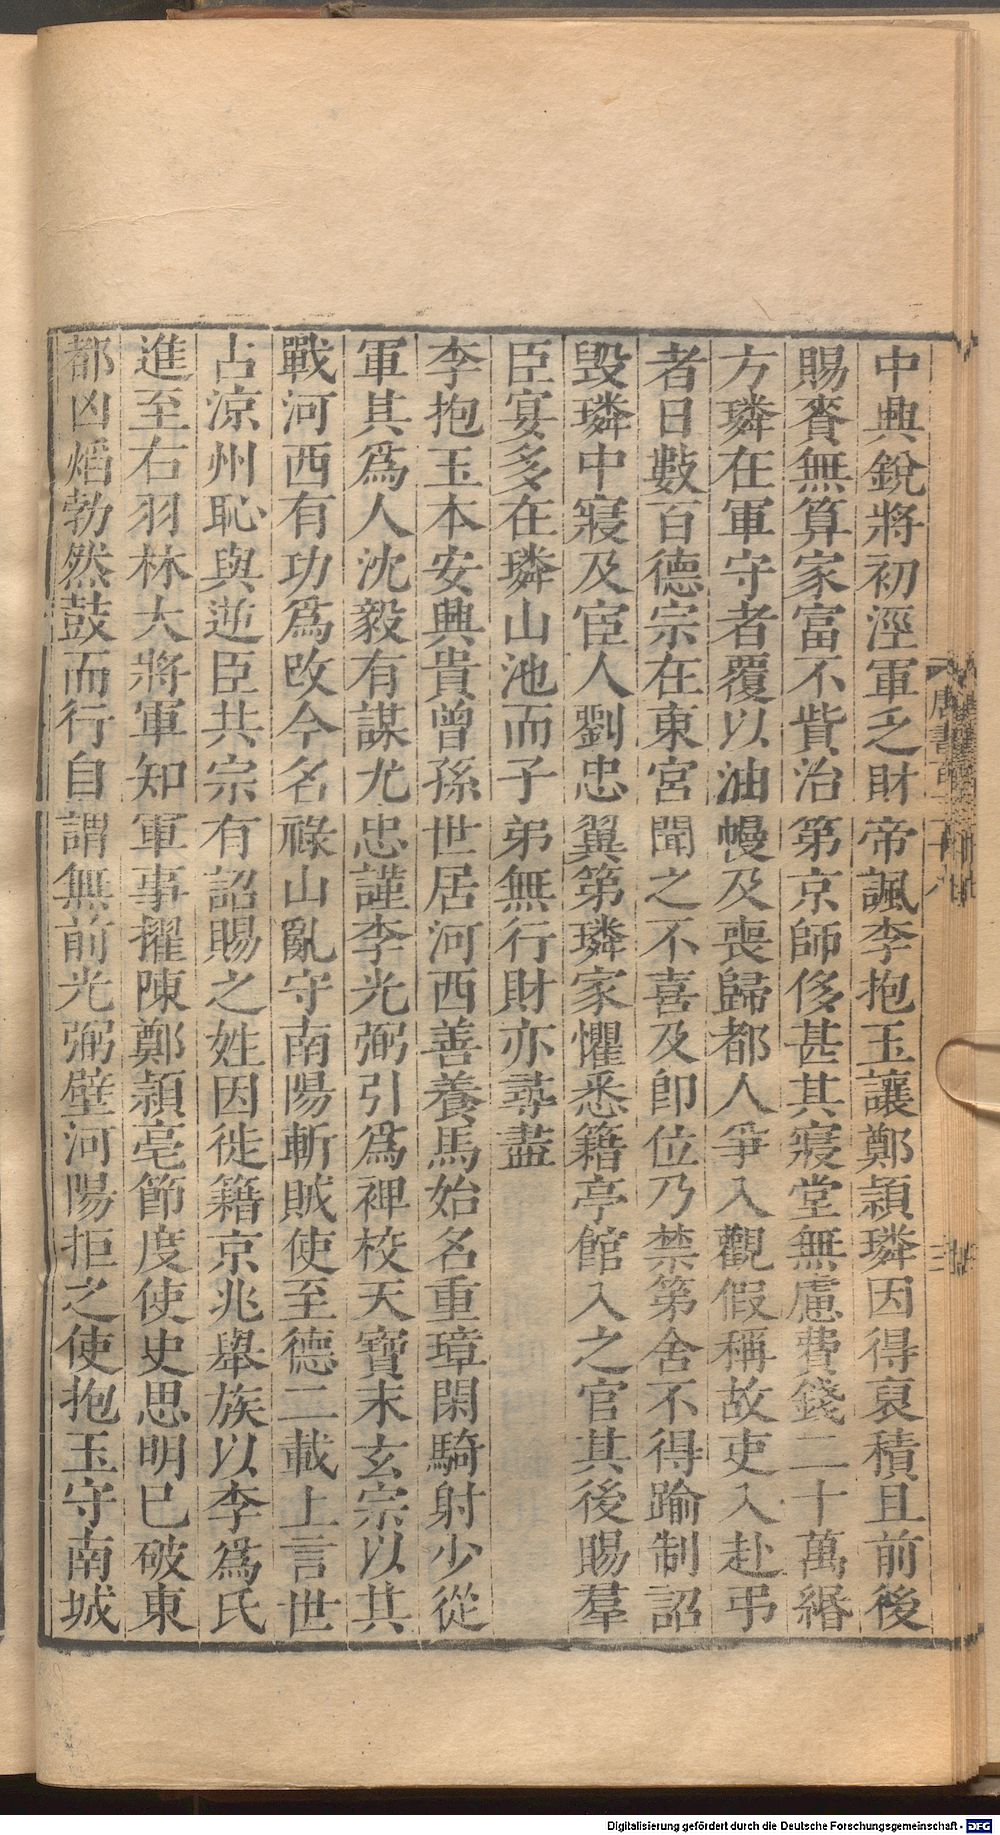 中興銳將初涇軍乏財帝諷李抱玉讓鄭潁璘因得裒積且前後
賜賚無算家富不貲治第京師侈甚其寢堂無慮費錢二十萬緡
方璘在軍守者覆以油幔及喪歸都人爭入觀假稱故吏入赴弔
者日數百德宗在東宮聞之不喜及卽位乃禁第舍不得踰制詔
毀璘中寢及宦人劉忠翼第璘家懼悉籍亭館入之官其後賜羣
臣宴多在璘山池而子弟無行財亦尋盡
李抱玉本安興貴曾孫世居河西善養馬始名重璋閑騎射少從
軍其爲人沈毅有謀尤忠謹李光弼引爲裨校天寶末玄宗以其
戰河西有功爲改今名祿山亂守南陽斬賊使至德二載上言世
占涼州恥與逆臣共宗有詔賜之姓因徙籍京兆舉族以李爲氏
進至右羽林大將軍知軍事擢陳鄭潁亳節度使史思明已破東
都凶熖勃然鼓而行自謂無前光弼壁河陽拒之使抱玉守南城
唐書百三十八
三
Digitalisierung gefördert durch die Deutsche Forschungsgemeinschaft - DFG